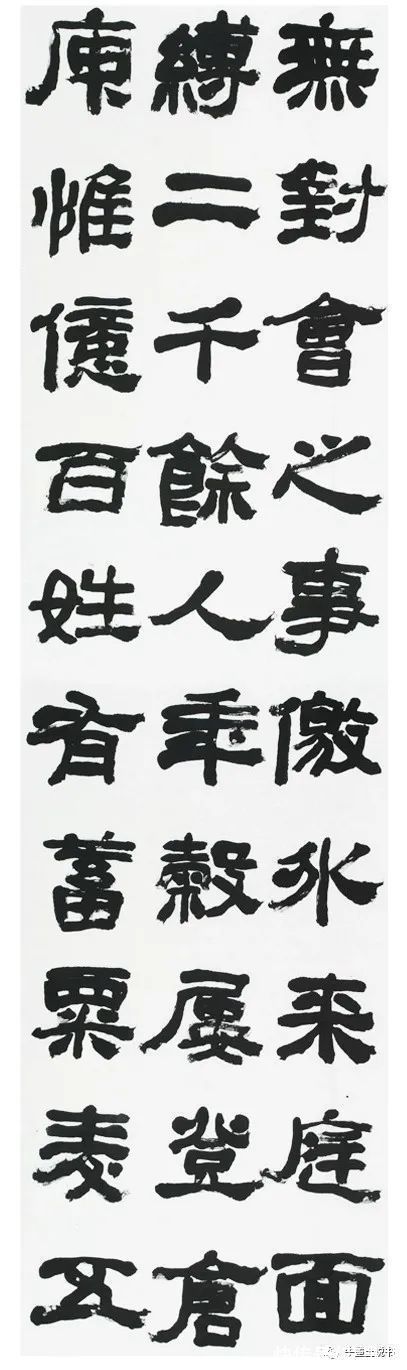 無對會之事儌外来庭面
縛二千餘人年穀屢登倉
庾惟億百姓有蓄粟麦五